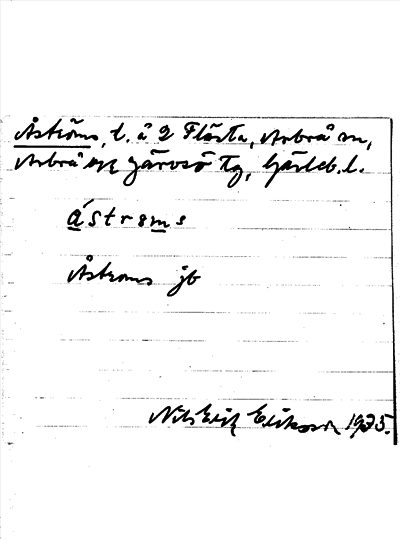 Åströms, t. å 2 Flästa, Arbrå sn,
Arbrå Järvsö tg, Gävleb. l.
ástrøms
Åströms jb
Nils Erik Eriksson 1935.